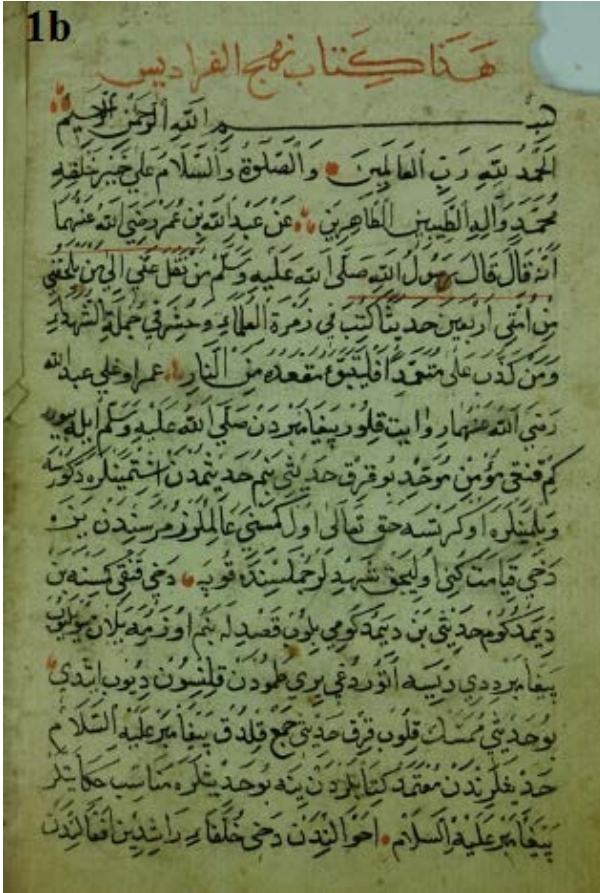 1b
هذا كتاب نهج الفراديس
بسم الله الرحمن الرحيم
الحمد لله رب العالمين والصلوة والسلام على خير خلقه
محمد واله الطيبين الطاهرين عن عبد الله بن عمر رضي الله عنهما
انه قال قال رسول الله صلى الله عليه وسلم من نقل عني الى من يلحقني
من امتي اربعين حديثا كتب في زمرة العلماء وحشر في جملة الشهداء
ومن كذب على متعمدا فليتبوء مقعده من النار عمر اوغلي عبد الله
رضي الله عنهما روايت قلور پيغامبردن صلى الله عليه وسلم ايله
كم قنقى مؤمن موحد بو قرق حديثي بنم حديثمدن اشتمينلره دكورسه
وبلمينلره اوكرتسه حق تعالى اول كمسني عالملر زمرسندن
دخي قيامت كني اوليحق شهيدلر جملسنده قوپه دخي قنقي كمسنه بن
ديمدكوم حديثي بن ديمدكومي بلوب قصدله بنم اوزرمه يلان سويلوب
پيغامبر ددي ديسه اتوردغي يري طمودن قلنسون ديوب ايتدي
بو حديثي تمسك قلوب قرق حديثي جمع قلدق پيغامبر عليه السلام
حديثلرندن معتمد كتابلردن ينه بو حديثلره مناسب حكايتلر
پيغامبر عليه السلام احوالندن دخي خلفاء راشدين افعالندن